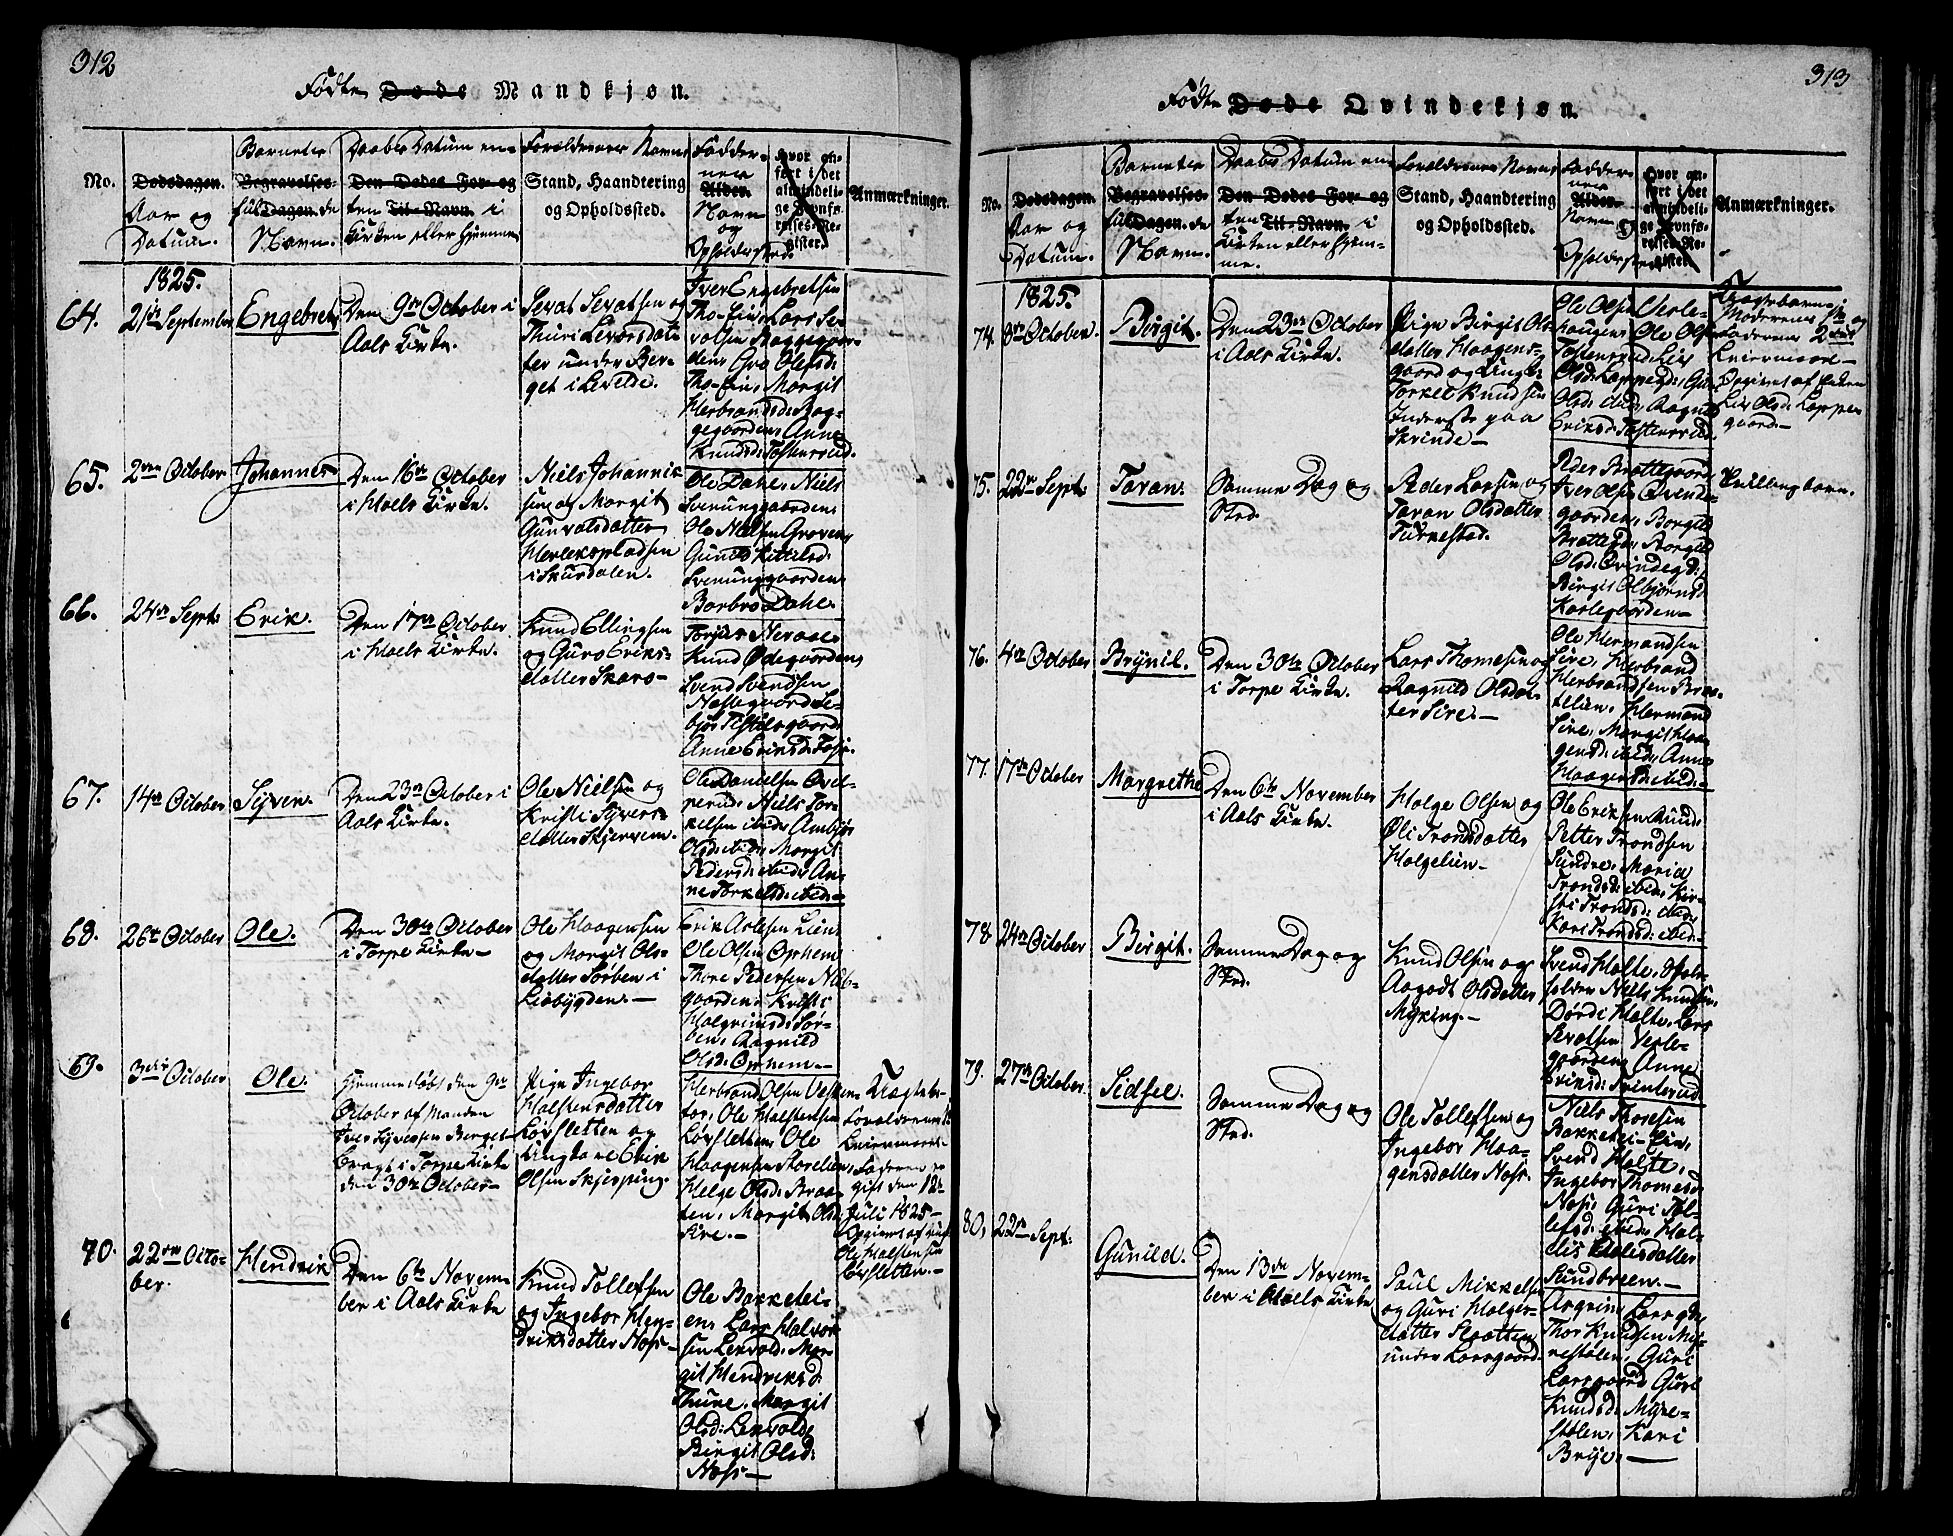 312
Fødte Døde Mandkjøn.
No.
Dødsdagen.
Aar og
Datum.
Barnets
Begravelses-
fulde Dagen.
Navn.
Daabs Datum en-
Den Dødes For- og
ten Til-Navn. i
Kirken eller hjemme
Forældrenes Navne
Stand, Haandtering
og Opholdssted.
Fadder-
nes
Alder.
Navn
og
Opholdssted.
Hvor an-
ført i det
almindeli-
ge Jevnfø-
relses-Re-
gister.
Anmærkninger.
1825.
64.
21de September
Engebret
Den 9de October i
Aals Kirke.
Sevat Sevatsen og
Thuri Levorsdat-
ter under Ber-
get i Leveldr.
Iver Engebretsen
Tho-fin, Lars Se-
vatsen Raggegaar-
den, Gro Olefsd:
Tho-fin, Margit
Herbrandsd: Rag-
gegaarden, Anne
Knudsd: Tostensrud.
65.
2den October
Johannes
Den 16de October
i Hoels Kirke.
Niels Johannes-
sen og Margit
Gunvalsdatter
Herleikspladsen
i Skurdalen.
Ole Dahle, Niels
Svenunggaarden
Ole Nielsen Groven,
Gunild Kittilsd:
Svenunggaarden
Barbro Dahle.
66.
24de Sept:
Erik.
Den 17de October
i Hoels Kirke.
Knud Ellingsen
og Guro Eriks-
datter Skaro-
Torjus Neraae
Knud Ødegaarden,
Svend Svendsen
Anne Eriksd:
67.
14de October
Syver.
Den 23de October i
Aals Kirke.
Ole Nielsen og
Kristi Syvers-
datter Skjervem.
Ole Danielsen Qvel-
prud, Niels Tor-
kelsen ibid, Ambjør
Olsd: ibid, Margit
Pedersd: ibid, An-
ne Torkelsd: ibid.-
68.
26de October
Ole.
Den 30te October
i Torpe Kirke-
Ole Haagensen
og Margit Ols-
datter Sørben i
Liabygden.-
Erik Aslesen Lien
Ole Olsen Ophem
Thore Pedersen Nub-
gaarden, Kristi
Halgrimsd: Sør-
ben, Ragnild
Olsd: Ophem.-
69.
3die October
Ole.
Hjemmedøbt den 9de
October af Manden
Iver Syversen Berget
bragt i Torpe Kirke
den 30te October-
Pige Ingebor
Halstensdatter
Løvsletten og
Ungkarl Erik
Olsen Skjerping.
Herbrand Olsen
Ole Halstensen
Løvsletten, Ole
Haagensen Storelien,
Helge Olsd: Braa-
ten, Margit Olsd:
Sire.-
Uægte
Forældrenes 1te
Leiermaal.
Faderen er
gift den 12te
Juli 1825-
Opgivet af
Ole Halstensen
Løvsletten.-
70.
22de Octo-
ber.
Hendrik
Den 6te Novem-
ber i Aals Kirke
Knud Tollefsen
og Ingebor Hen-
driksdatter Noss-
Ole Bakkelei-
en, Lars Halvor-
sen Leksvold, Mar-
git Hendriksd:
Thure, Margit
Olsd: Leksvold,
Birgit Olsd:
Noss-
313
Fødte Døde Qvindekjøn.
No.
Dødsdagen.
Aar og
Datum.
Barnets
Begravelses-
fulde Dagen.
Navn.
Daabs Datum en-
Den Dødes For- og
ten Til-Navn. i
Kirken eller hjem-
me.
Forældrenes Navne
Stand, Haandtering
og Opholdssted.
Fadder-
nes
Alder.
Navn og
Opholdssted
Hvor an-
ført i det
almindeli-
ge Jevnfø-
relses-Re-
gister.
Anmærkninger.
1825.
74.
8de October.
Birgit.
Den 23de October
i Aals Kirke.
Pige Birgit Ols-
datter Haagens-
gaard og Ungk:
Torkel Knudsen
Inderst paa
Skrinde-
Ole Olsen Versle-
haugen, Ole Olsen
Tostensrud, Liv
Olsd: Loppegd: Gun:
Olsd: ibid, Ragnild
Eriksd: Tostensrud.
Uægte barn
Moderens 1te og
Faderens 2det
Leiermaal-
Opgivet af Enken
Liv Olsd: Loppe-
gaard-
75.
22de Sept:
Taran.
Samme Dag og
Sted.
Peder Larsen og
Taran Olsdatter
Turkestad.
Peder Brattegaard
Iver Olsen Qvinde-
gaarden, Borgild
Brattegd: Borgild
Olsd: Qvindegd:
Birgit Olbjørnsd:
Karlsgaarden-
Tvillingbarn.
76.
4de October
Brynil.
Den 30te October
i Torpe Kirke.
Lars Thomesen og
Ragnild Olsdat-
ter Sire.-
Ole Hermandsen
Sire, Herbrand
Herbrandsen Braa-
telien, Hermand
Sire, Margit Haa-
gensd: ibid, Anne
Haagensd: ibid.-
77.
17de October
Margrethe
Den 6te November
i Aals Kirke.
Holge Olsen og
Øli Trondsdatter
Holgelien-
Ole Eriksen Rud:
Petter Trondsen
Sundre, Maria
Trondsd: ibid, Kir-
sti Trondsd: ibid,
Kari Trondsd: ibid.-
78.
24de October
Birgit.
Samme Dag og
Sted.
Knud Olsen og
Aagodt Olsdatter
Myking.-
Svend Holte,
Niels Knudsen,
Dørdi Holte, Lars
Sevatsen Versle-
gaarden, Anne
Eriksd: Trenterud
79.
27de October.
Sidsel.
Samme Dag og
Sted.
Ole Tollefsen og
Ingebor Haa-
gensdatter Noss-
Niels Thoresen
Bakkelei-Ein,
Svend Holte,
Ingebor Thomesd:
Noss, Guri Tol-
lefsd: ibid,
Sundbreen.-
80.
22de Sept:
Gunild.
Den 13de Novem-
ber i Hoels Kirke
Paul Mikkelsen
og Guri Holger-
datter Slaatten
under Larsgaard.
Asgrim Larsgd:
Thor Knudsen My-
restølen, Guri
Larsgaard, Guri
Knudsd: Myre-
stølen, Kari
Brye.-